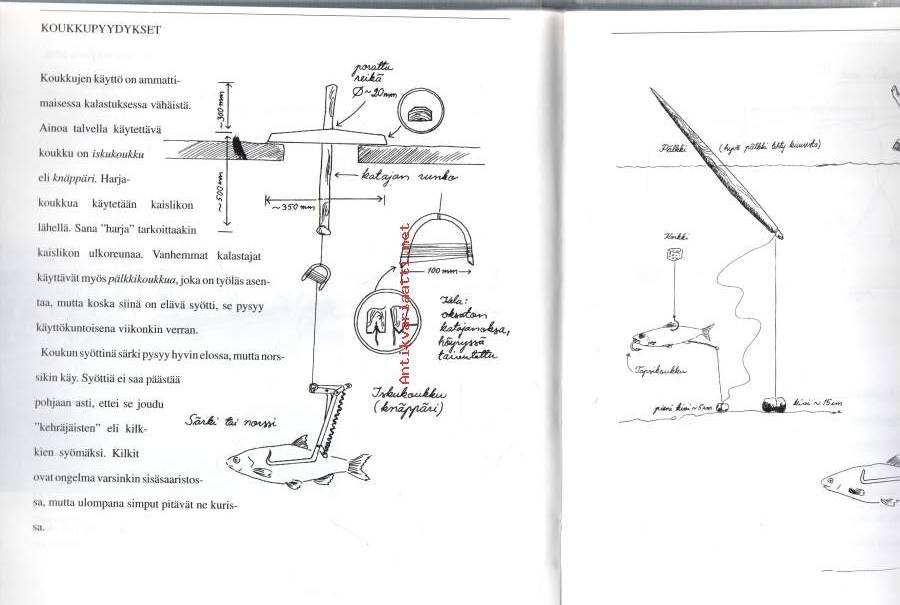 KOUKKUPYYDYKSET
Koukkujen käyttö on ammatti-
maisessa kalastuksessa vähäistä.
Ainoa talvella käytettävä
koukku on iskukoukku
eli knäppäri. Harja-
koukkua käytetään kaislikon
lähellä. Sana "harja" tarkoittaakin
kaislikon ulkoreunaa. Vanhemmat kalastajat
käyttävät myös pälkkikoukkua, joka on työläs asen-
taa, mutta koska siinä on elävä syötti, se pysyy
käyttökuntoisena viikonkin verran.
Koukun syöttinä särki pysyy hyvin elossa, mutta nors-
sikin käy. Syöttiä ei saa päästää
pohjaan asti, ettei se joudu
"kehräjäisten" eli kilk-
kien syömäksi. Kilkit
ovat ongelma varsinkin sisäsaaristos-
sa, mutta ulompana simput pitävät ne kuris-
sa.
porattu
reikä
Ø~20mm
~300 mm
~500 mm
katajan runko
~350 mm
100 mm
Jala:
oksaton
katajanoksa,
höyryssä
taivutettu
Iskukoukku
(knäppäri)
Särki tai norssi
Antikvariaatti.net
Pälkki (hyvä pälkki kuusesta)
Korkki
pieni kivi ~5cm
kivi ~15cm